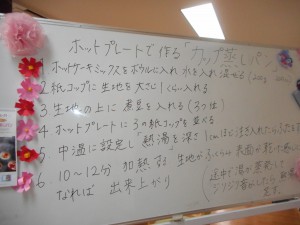 ホットプレートで作る「カップ蒸しパン」
ホットケーキミックスをボウルに入れ 水を入れ 混ぜる
2 紙コップに生地を大さじ1くらい入れる
3 生地の上に 煮豆を入れる(3つ位)
4 ホットプレートに3の紙コップを並べる
5 中温に設定し 熱湯を深さ1cmほど注ぎ入れたらふた
6. 10~12分 加熱する 生地がふくらみ 表面が乾いた
なれば 出来上がり
(途中で湯が蒸発して
ジリジリ音がしたら
ます。